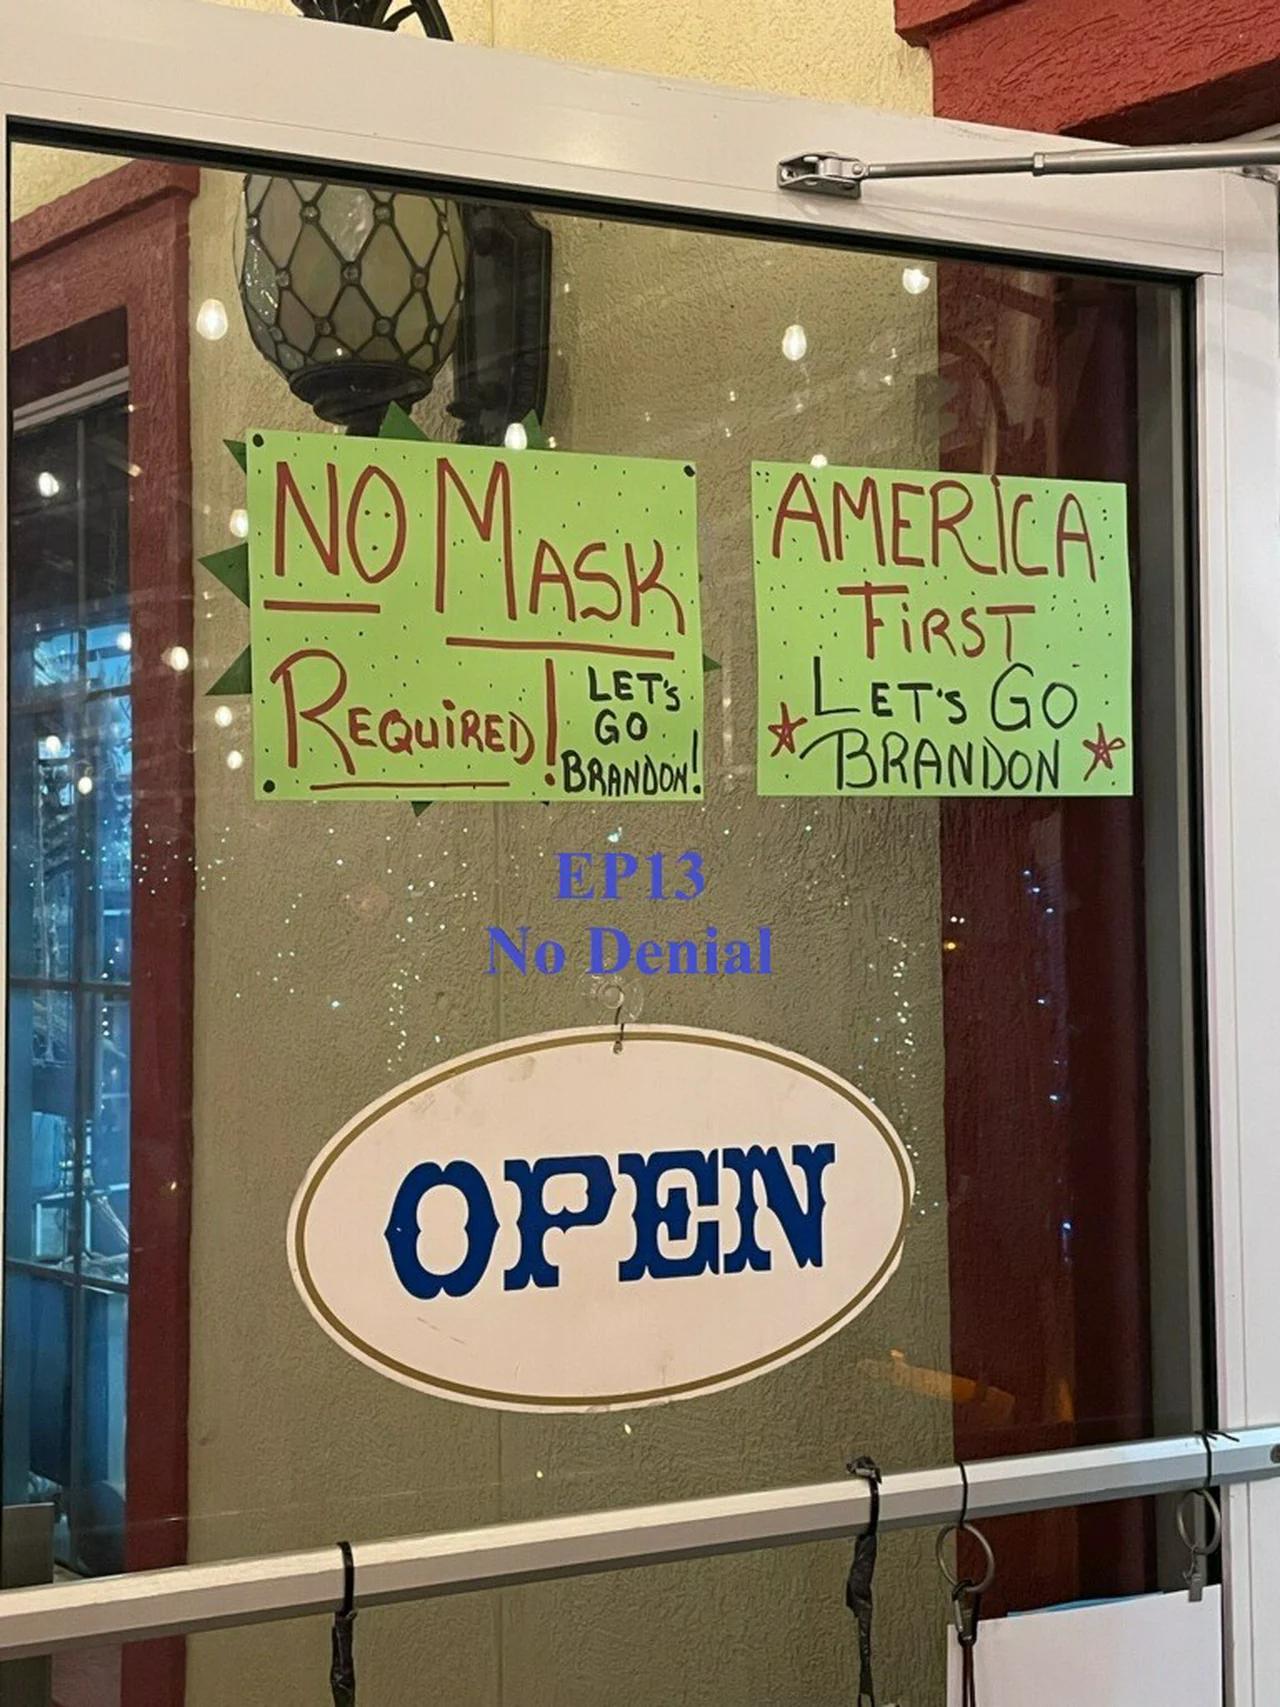 NO MASK
REQUIRED!
LET'S
GO
BRANDON!
AMERICA
FIRST
LET'S GO
BRANDON
EP13
No Denial
OPEN